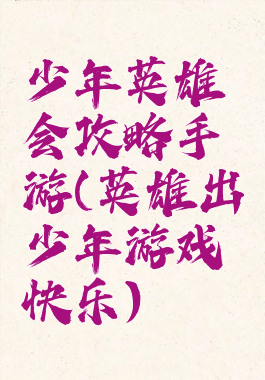 少年英雄
会攻略手
游(英雄出
少年游戏
快乐)